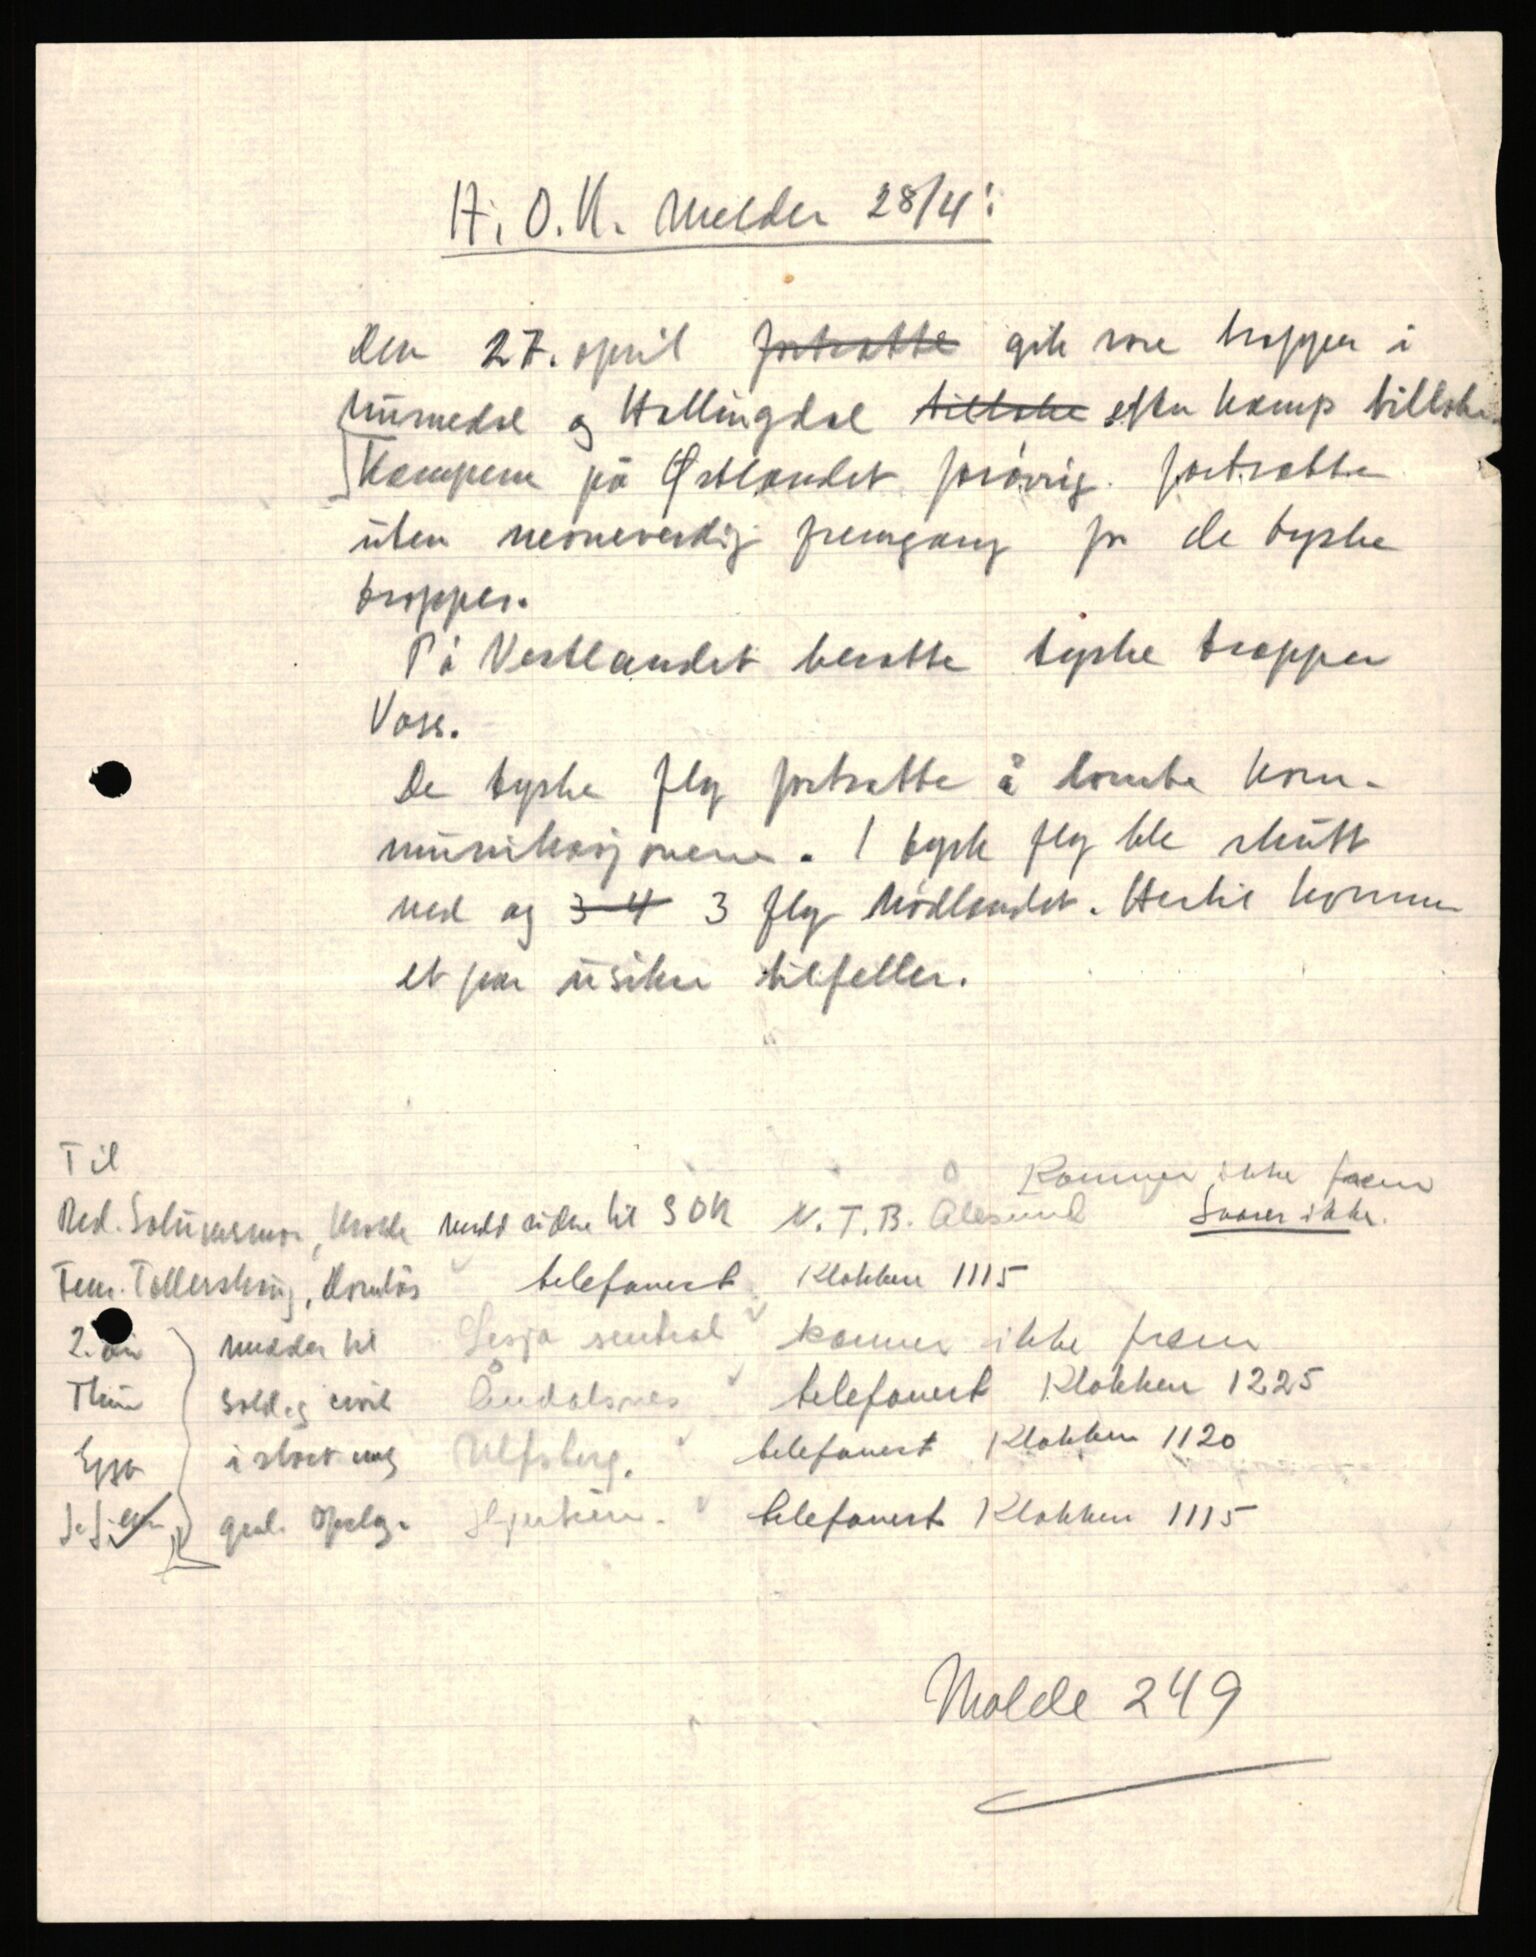 H.O.K. Melder 28/4:
Den 27. april fortsatte gik våre tropper i
Numedal og Hallingdal tilbake efter kamp tilbake
Kampene på Østlandet forøvrig fortsatte
uten nevneverdig fremgang for de tyske
tropper.
På Vestlandet besatte tyske tropper
Voss.
De tyske fly fortsatte å bombe kom-
munikasjonene. 1 tysk fly ble skutt
ned og 3-4 3 fly nødlandet. Hertil kommer
et par usikre tilfeller.
Til
Kommer ikke frem
Red. Molde meld videre til SOK N.T.B. Ålesund Svarer ikke.
Tollerskrug, Dombås telefonert Klokken 1115
2. div melder til Lesja sentral kommer ikke frem
Thue sold. og civil Åndalsnes telefonert Klokken 1225
i stort Ulfsberg. telefonert Klokken 1120
Hjerkinn. telefonert Klokken 1115
Molde 249